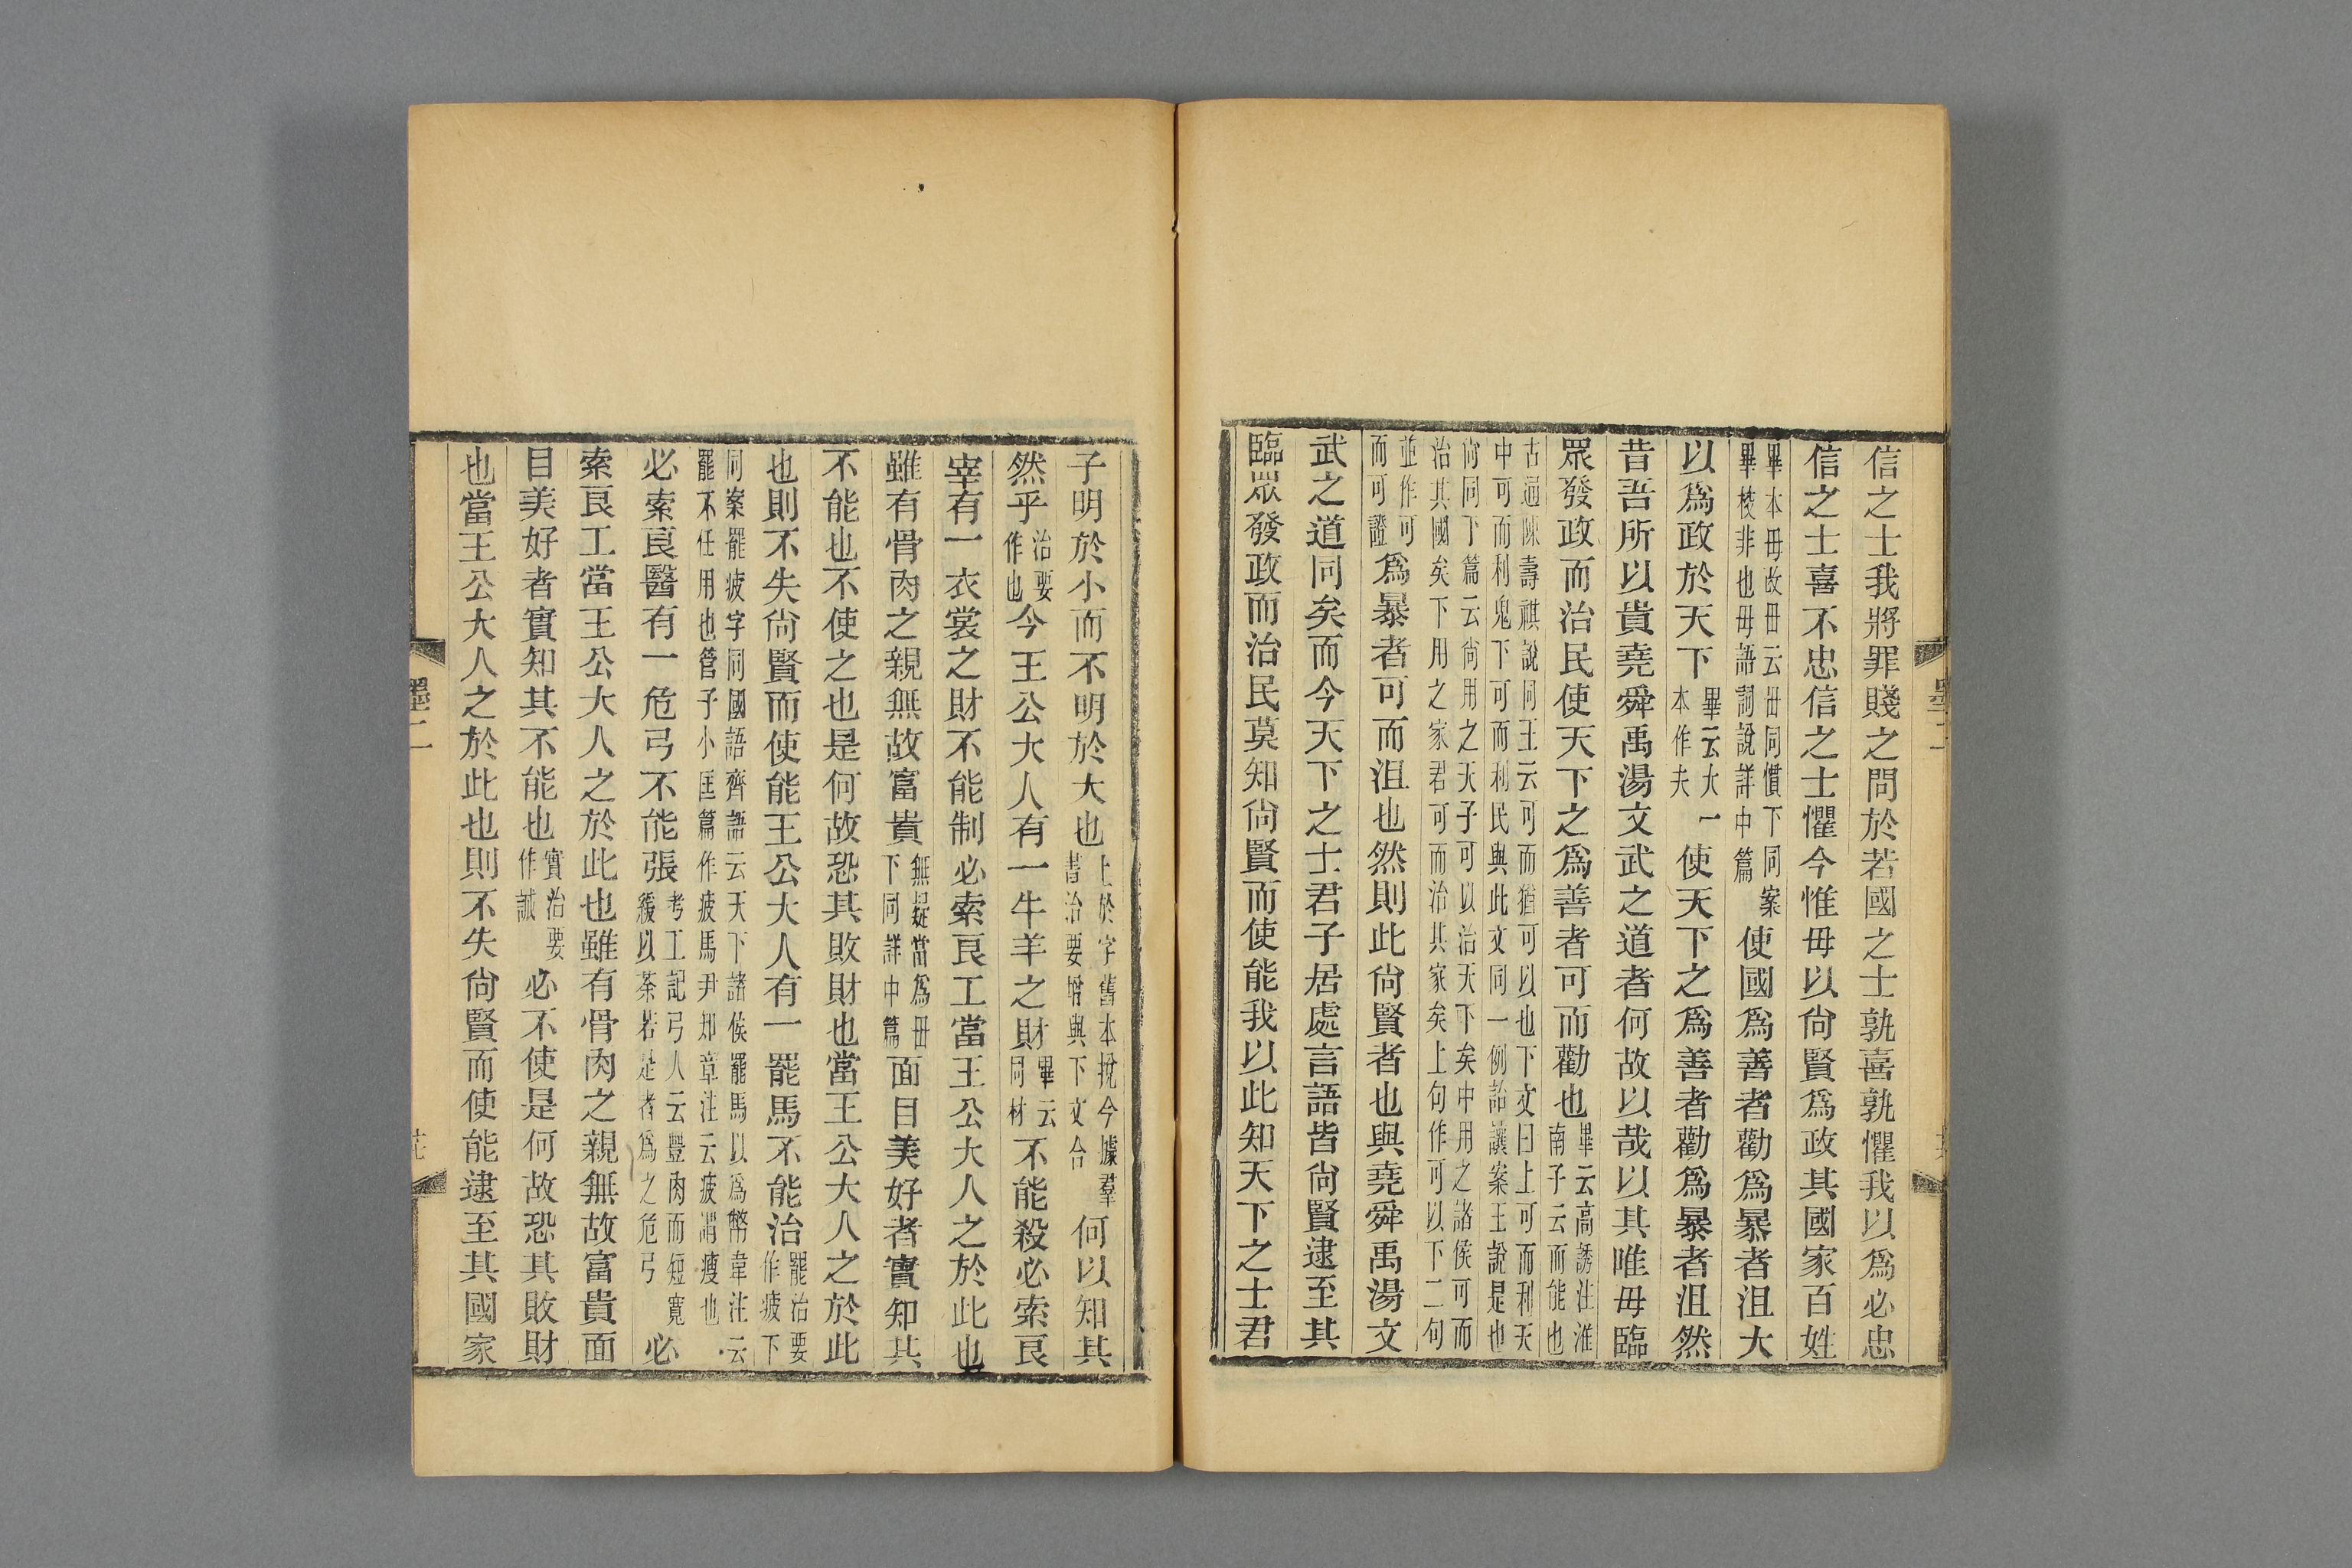 信之士我將罪賤之問於若國之士孰喜孰懼我以爲必忠
信之士喜不忠信之士懼今惟毋以尙賢爲政其國家百姓
畢本毋改毌云毌同慣下同案
畢校非也毋語詞說詳中篇
使國爲善者勸爲暴者沮大
以爲政於天下
畢云大一
本作夫
使天下之爲善者勸爲暴者沮然
昔吾所以貴堯舜禹湯文武之道者何故以哉以其唯毋臨
眾發政而治民使天下之爲善者可而勸也
畢云高誘注淮
南子云而能也
古通陳壽祺說同王云可而猶可以也下文曰上可而利天
中可而利鬼下可而利民與此文同一例詒讓案王說是也
尙同下篇云尙用之天子可以治天下矣中用之諸侯可而
治其國矣下用之家君可而治其家矣上句作可以下二句
並作可
而可證
爲暴者可而沮也然則此尙賢者也與堯舜禹湯文
武之道同矣而今天下之士君子居處言語皆尙賢逮至其
臨眾發政而治民莫知尙賢而使能我以此知天下之士君
子明於小而不明於大也
上於字舊本挩今據羣
書治要增與下文合
何以知其
然乎
治要
作也
今王公大人有一牛羊之財
畢云
同材
不能殺必索良
宰有一衣裳之財不能制必索良工當王公大人之於此也
雖有骨肉之親無故富貴
無疑當爲毌
下同詳中篇
面目美好者實知其
不能也不使之也是何故恐其敗財也當王公大人之於此
也則不失尙賢而使能王公大人有一罷馬不能治
罷治要
作疲下
同案罷疲字同國語齊語云天下諸侯罷馬以爲幣韋注云
罷不任用也管子小匡篇作疲馬尹知章注云疲謂瘦也
必索良醫有一危弓不能張
考工記弓人云豐肉而短寬
緩以荼若是者爲之危弓
必
索良工當王公大人之於此也雖有骨肉之親無故富貴面
目美好者實知其不能也
實治要
作誠
必不使是何故恐其敗財
也當王公大人之於此也則不失尙賢而使能逮至其國家
墨二